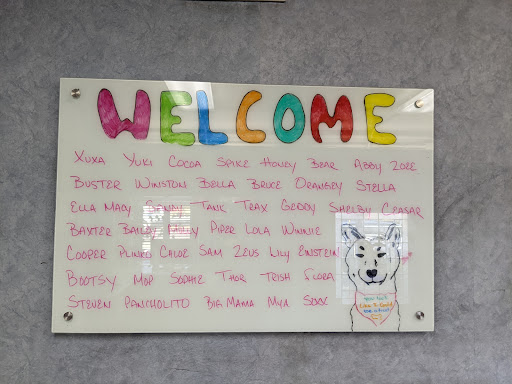 WELCOME
XUXA YUKI COCOA SPIKE HONEY BEAR ABBY ZOEE
BUSTER WINSTON BELLA BRUCE ORANGEY STELLA
ELLA MACY TANK TRAX GEDDY SHELBY CEASAR
BAXTER BAILEY MILLY PIPER LOLA WINNIE
COOPER CHLOE SAM ZEUS LILY EINSTEIN
BOOTSY MOP SOPHIE THOR TRISH FLORA
STEVEN PANCHOLITO BIG MAMA MYA